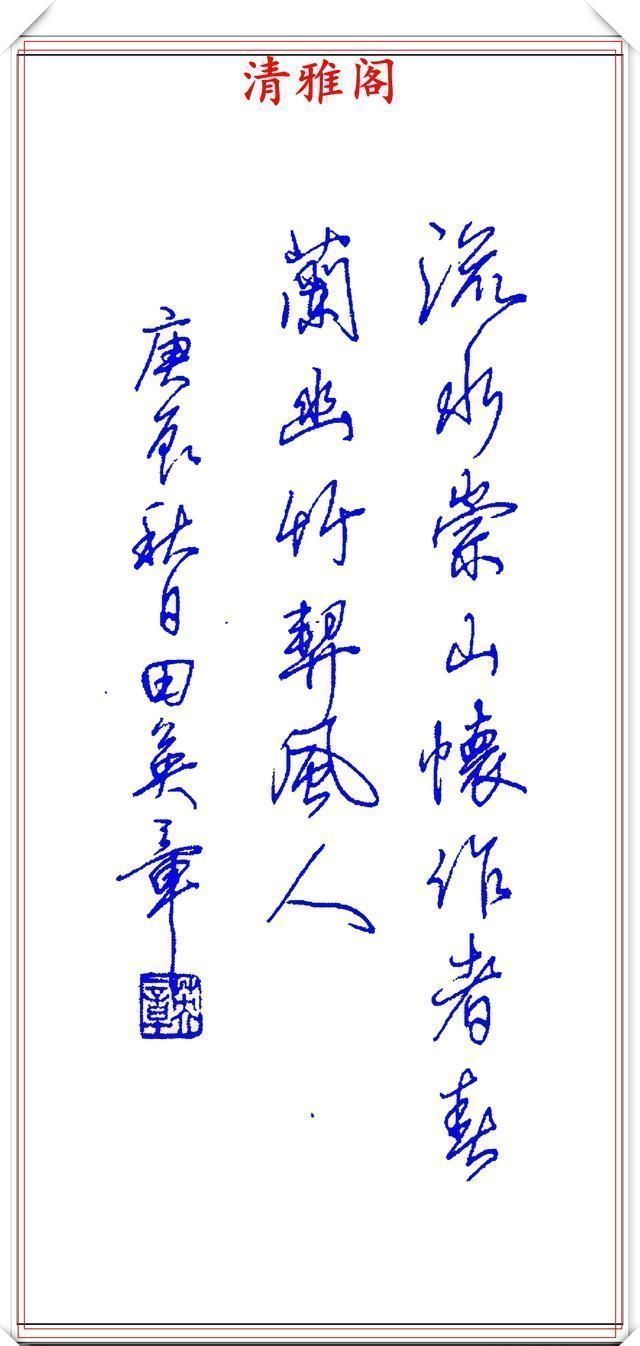 清雅阁
流水崇山懷作者春
蘭幽竹契風人
庚辰秋日田英章
英章